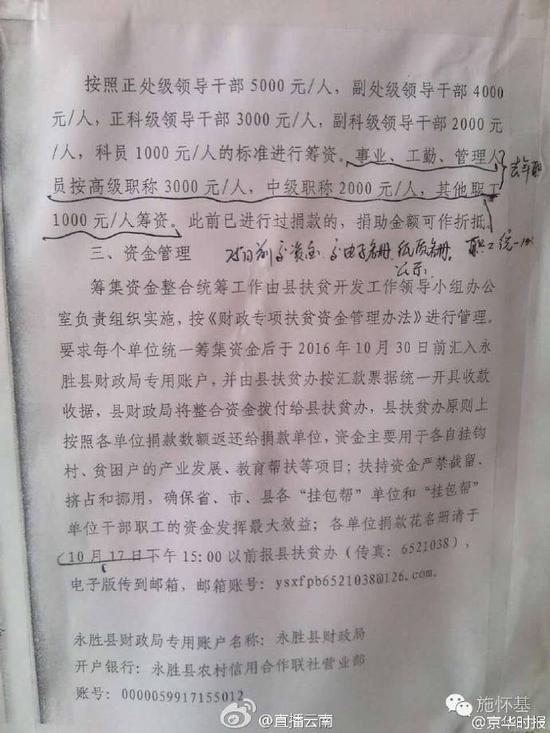 按照正处级领导干部 5000 元/人，副处级领导干部 4000
元/人，正科级领导干部 3000 元/人，副科级领导干部 2000
元/人，科员 1000 元/人的标准进行筹资。事业、工勤、管理人
员按高级职称 3000 元/人，中级职称 2000 元/人，其他职工
1000 元/人筹资。此前已进行过捐款的，捐助金额可作折抵。
三、资金管理
25日前交资金 交电子名册 纸质名册
公示
职工统一
筹集资金整合统筹工作由县扶贫开发工作领导小组办公
室负责组织实施，按《财政专项扶贫资金管理办法》进行管理。
要求每个单位统一筹集资金后于 2016 年 10 月 30 日前汇入永
胜县财政局专用账户，并由县扶贫办按汇款票据统一开具收款
收据，县财政局将整合资金拨付给县扶贫办，县扶贫办原则上
按照各单位捐款数额返还给捐款单位，资金主要用于各自挂钩
村、贫困户的产业发展、教育帮扶等项目；扶持资金严禁截留、
挤占和挪用，确保省、市、县各“挂包帮”单位和“挂包帮”
单位干部职工的资金发挥最大效益；各单位捐款花名册请于
10 月 17 日下午 15:00 以前报县扶贫办（传真：6521038），
电子版传到邮箱，邮箱账号：ysxfpb6521038@126.com。
永胜县财政局专用账户名称：永胜县财政局
开户银行：永胜县农村信用合作联社营业部
账号：0000059917155012
施怀基
@直播云南
@京华时报